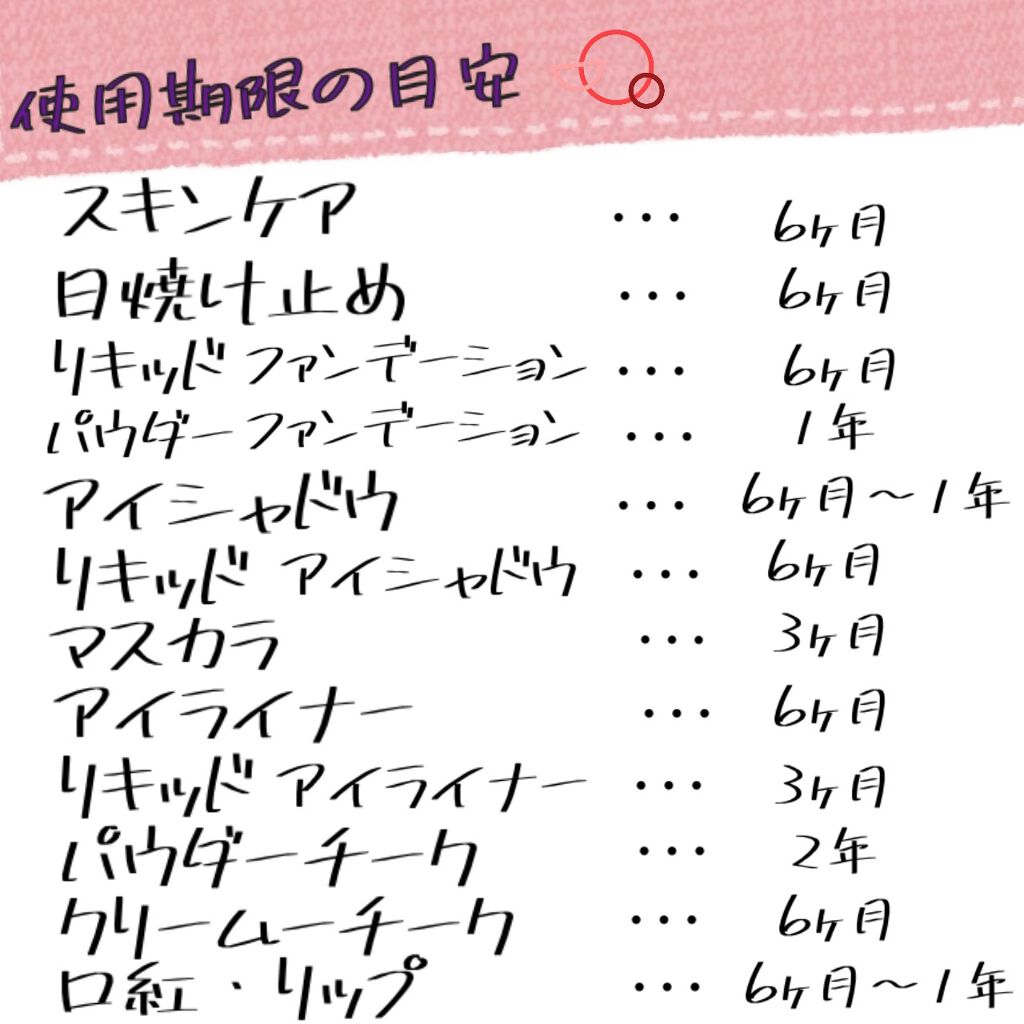 使用期限の目安
スキンケア ・・・ 6ヶ月
日焼け止め ・・・ 6ヶ月
リキッドファンデーション ・・・ 6ヶ月
パウダーファンデーション ・・・ 1年
アイシャドウ ・・・ 6ヶ月〜1年
リキッドアイシャドウ ・・・ 6ヶ月
マスカラ ・・・ 3ヶ月
アイライナー ・・・ 6ヶ月
リキッドアイライナー ・・・ 3ヶ月
パウダーチーク ・・・ 2年
クリームーチーク ・・・ 6ヶ月
口紅・リップ ・・・ 6ヶ月〜1年